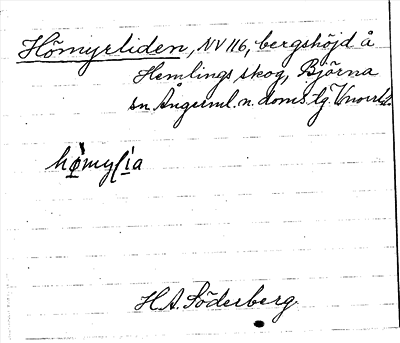 Hömyrliden, NV 116, bergshöjd å
Hemlings skog, Björna
sn. Ångerml. n. doms lg. V.norrl.
hömyl̥ia
H.A. Söderberg.